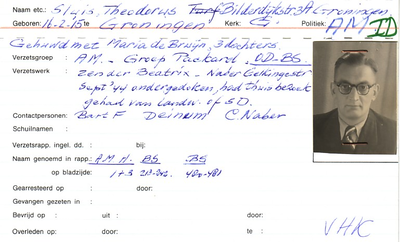 Naam etc.: Sluis, Theodorus Bilderdijkstr 3A Groningen
Geboren: 16-2-15 te Groningen Kerk: G. Politiek: AM ID
Gehuwd met Maria de Bruijn, 3 dochters
Verzetsgroep: A.M. - Groep Packard, OD-BS.
Verzetswerk: zender Beatrix - Nader Gellingestr
Sept '44 ondergedoken, had thuis bezoek
gehad van Landw. of SD.
Contactpersonen: Bart F Deinum C. Naber
Schuilnaam :
Verzetsrapp. ingel. dd. : bij:
Naam genoemd in rapp: AM H. BS BS
op bladzijde: 1+3 480-481
Gearresteerd op : door:
Gevangen gezeten in :
Bevrijd op : uit : door:
Overleden op: : te : door:
VHK